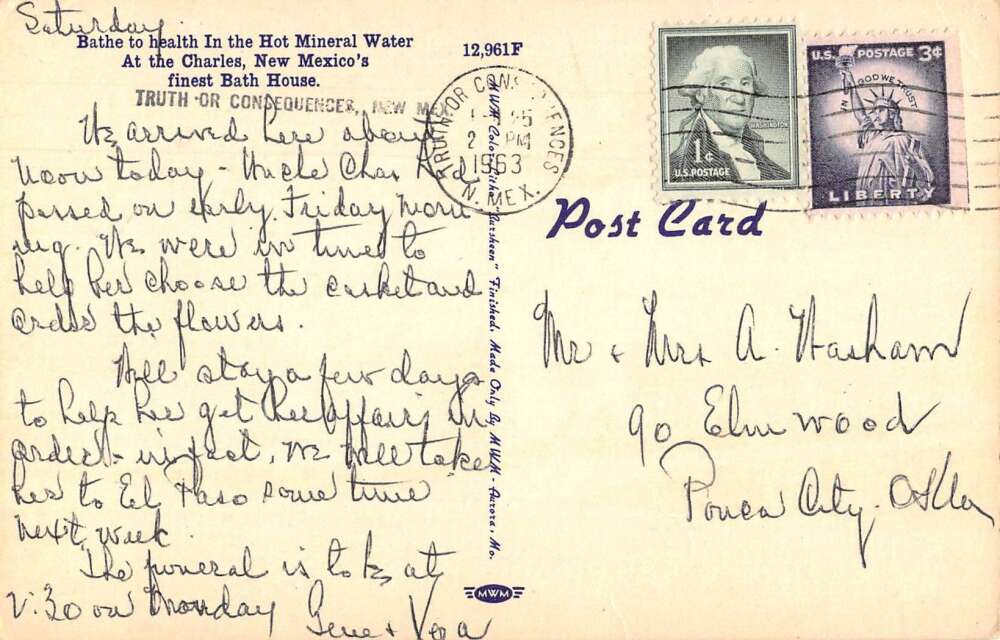 Saturday
Bathe to health In the Hot Mineral Water
At the Charles, New Mexico's
finest Bath House.
12,961F
TRUTH OR CONSEQUENCES, NEW MEX.
We arrived here about
noon today - Uncle Chas had
passed on early Friday morn-
ing. We were in time to
help her choose the casket and
order the flowers.
Will stay a few days
to help her get her affairs in
order - in fact, we will take
her to El Paso some time
next week.
The funeral is to be at
2:30 on Monday
Gene + Vera
TRUTH OR CONSEQUENCES
PM
1963
N. MEX.
MWM Color-Litho "Garsheen" Finished. Made Only By MWM - Aurora, Mo.
MWM
WASHINGTON
1¢
U.S. POSTAGE
U.S. POSTAGE 3¢
IN GOD WE TRUST
LIBERTY
Post Card
Mr + Mrs A. Washam
90 Elmwood
Ponca City. Okla